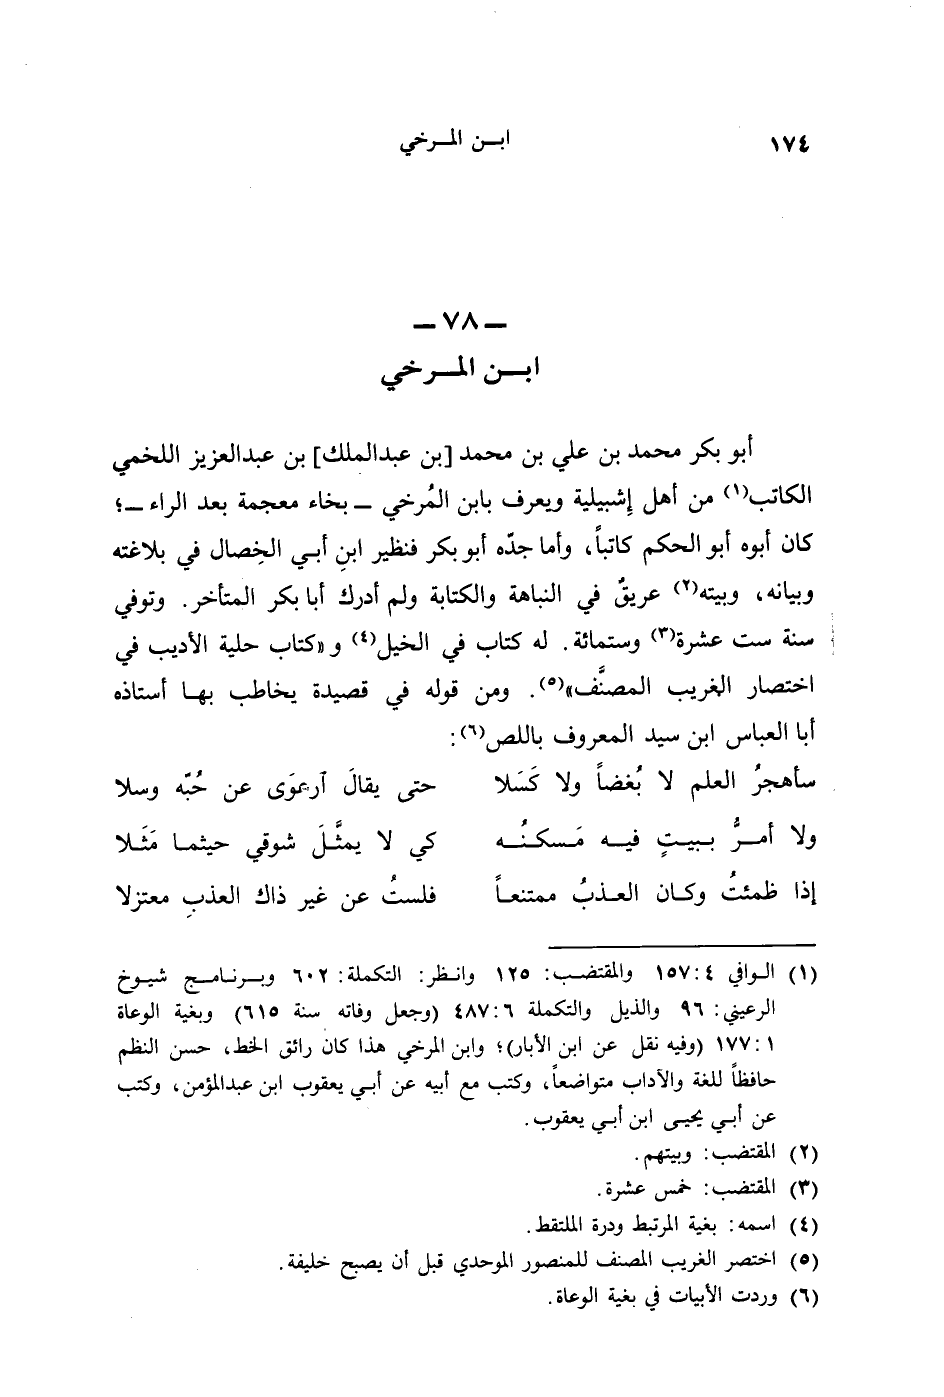 ١٧٤ ابن المرخي
– ٧٨ –
ابن المرخي
أبو بكر محمد بن علي بن محمد [بن عبدالملك] بن عبدالعزيز اللخمي
الكاتب(١) من أهل إشبيلية ويعرف بابن المُرخي – بخاء معجمة بعد الراء –؛
كان أبوه أبو الحكم كاتباً، وأما جدّه أبو بكر فنظير ابنِ أبي الخِصال في بلاغته
وبيانه، وبيته(٢) عريقٌ في النباهة والكتابة ولم أدرك أبا بكر المتأخر. وتوفي
سنة ست عشرة(٣) وستمائة. له كتاب في الخيل(٤) و «كتاب حلية الأديب في
اختصار الغريب المصنَّف»(٥). ومن قوله في قصيدة يخاطب بها أستاذه
أبا العباس ابن سيد المعروف باللص(٦):
سأهجرُ العلم لا بُغضاً ولا كَسَلا حتى يقالَ آرعوَى عن حُبّه وسلا
ولا أمرُّ ببيتٍ فيه مَسكنُه كي لا يمثَّلَ شوقي حيثما مَثَلا
إذا ظمئتُ وكان العذبُ ممتنعاً فلستُ عن غير ذاك العذبِ معتزلا
(١) الوافي ٤: ١٥٧ والمقتضب: ١٢٥ وانظر: التكملة: ٦٠٢ وبرنامج شيوخ
الرعيني: ٩٦ والذيل والتكملة ٦: ٤٨٧ (وجعل وفاته سنة ٦١٥) وبغية الوعاة
١: ١٧٧ (وفيه نقل عن ابن الأبار)؛ وابن المرخي هذا كان رائق الخط، حسن النظم
حافظاً للغة والآداب متواضعاً، وكتب مع أبيه عن أبي يعقوب ابن عبدالمؤمن، وكتب
عن أبي يحيى ابن أبي يعقوب.
(٢) المقتضب: وبيتهم.
(٣) المقتضب: خمس عشرة.
(٤) اسمه: بغية المرتبط ودرة الملتقط.
(٥) اختصر الغريب المصنف للمنصور الموحدي قبل أن يصبح خليفة.
(٦) وردت الأبيات في بغية الوعاة.